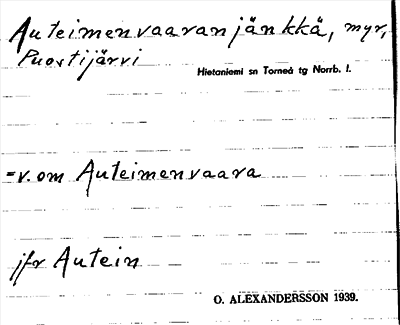 Auteimenvaaranjänkkä, myr,
Puostijärvi
Hietaniemi sn Torneå tg Norrb. l.
=v. om Auteimenvaara
jfr Autein
O. ALEXANDERSSON 1939.